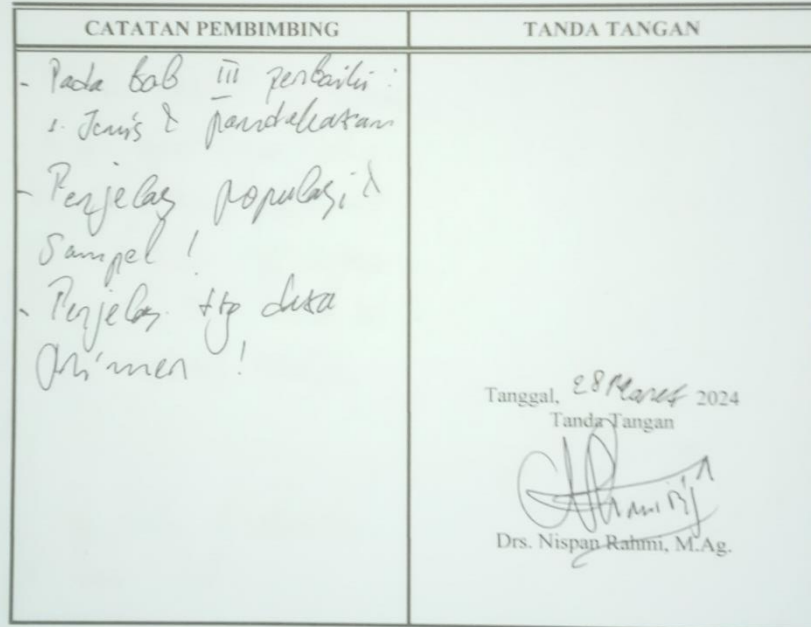 CATATAN PEMBIMBING
TANDA TANGAN
- Pada bab III perbaiki :
1. Jenis & pendekatan
- Perjelas populasi &
Sampel !
- Perjelas ttg data
primer !
Tanggal, 28 Maret 2024
Tanda Tangan
Drs. Nispan Rahmi, M.Ag.